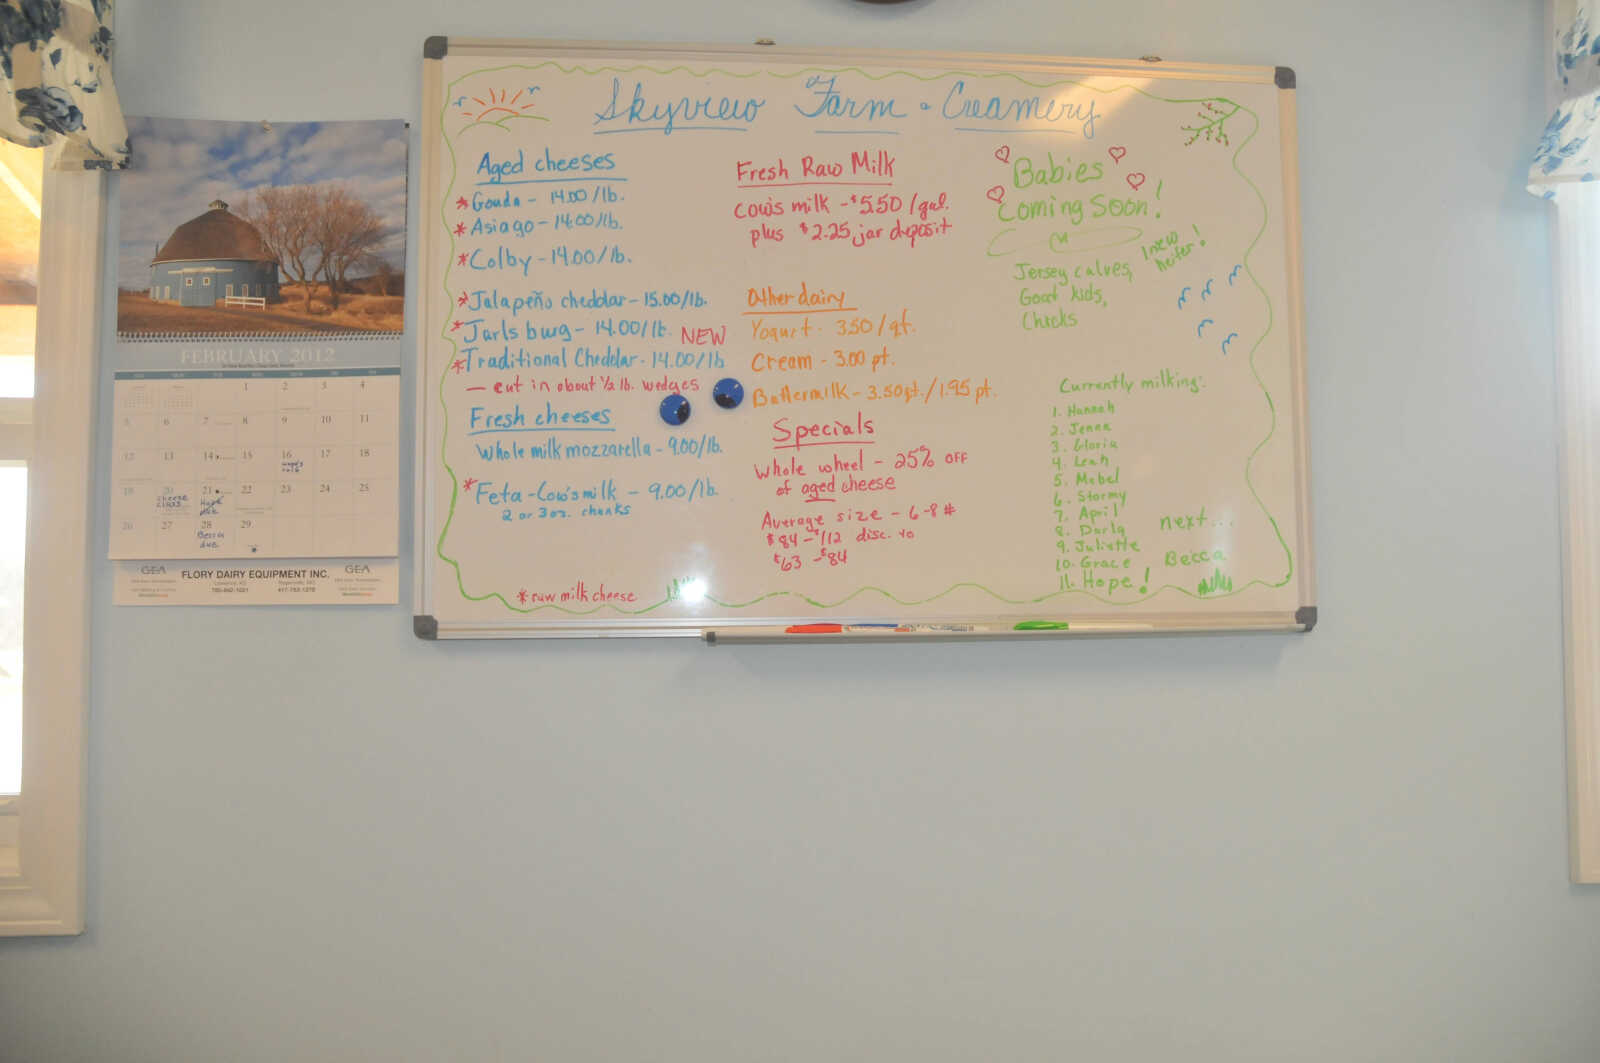 Skyview Farm & Creamery
Aged cheeses
* Gouda - 14.00/lb.
* Asiago - 14.00/lb.
* Colby - 14.00/lb.
* Jalapeño cheddar - 15.00/lb.
* Jarlsburg - 14.00/lb. NEW
* Traditional Cheddar - 14.00/lb
— cut in about 1/2 lb. wedges
Fresh cheeses
Whole milk mozzarella - 9.00/lb.
* Feta - Cow's milk - 9.00/lb.
2 or 3 oz. chunks
* raw milk cheese
Fresh Raw Milk
Cow's milk - $5.50/gal.
plus $2.25 jar deposit
Other dairy
Yogurt - 3.50/qt.
Cream - 3.00 pt.
Buttermilk - 3.50 qt./1.95 pt.
Specials
Whole wheel - 25% OFF
of aged cheese
Average size - 6-8 #
$84 - $112 disc. to
$63 - $84
Babies
Coming Soon!
Jersey calves, 1 new heifer!
Goat kids,
Chicks
Currently milking:
1. Hannah
2. Jenna
3. Gloria
4. Leah
5. Mabel
6. Stormy
7. April
8. Darla
9. Juliette
10. Grace
11. Hope!
next...
Becca
FEBRUARY 2012
1 2 3 4
5 6 7 8 9 10 11
12 13 14 15 16 17 18
19 20 21 22 23 24 25
cheese
class
26 27 28 29
Becca
due
GEA FLORY DAIRY EQUIPMENT INC. GEA